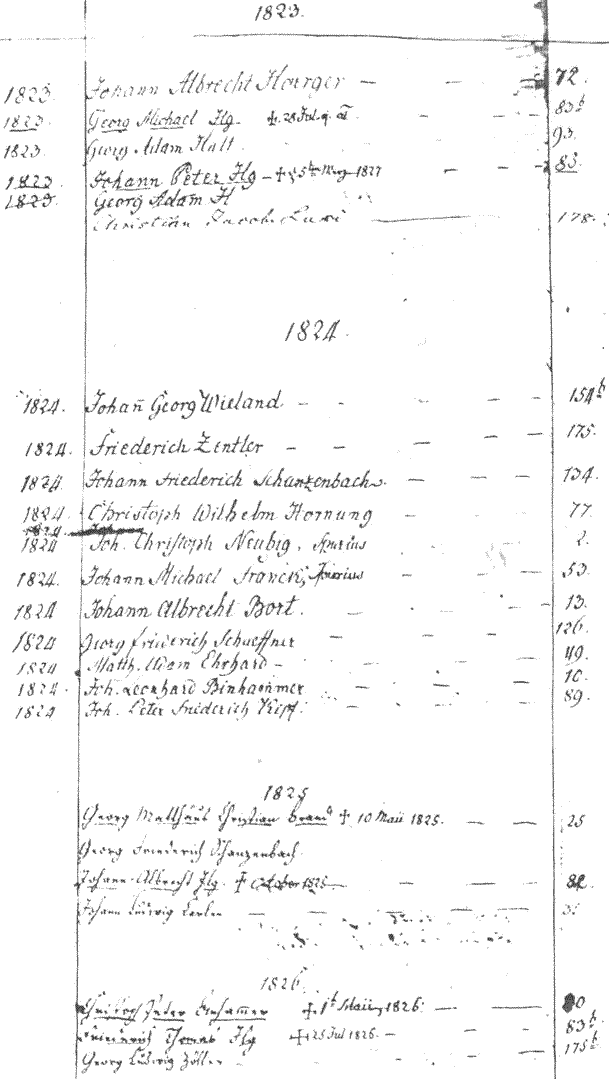 1823.
1823. Johann Albrecht Hoerger — — — 72.
1823. Georg Michael Ilg. ✝ 28 Jul. — — 83b
1823 Georg Adam Hall — 93.
1823. Johann Peter Ilg — ✝ 1827 — — 83.
1823. Georg Adam H
Christian Jacob — 178.
1824.
1824. Johan̄ Georg Wieland — — — — 154b
1824. Friederich Zentler — — — — 175.
1824. Johann Friederich Schanzenbach. — — — 134.
1824. Christoph Wilhelm Hornung — — — 77
1824. Joh
1824 Joh. Christoph Neubig, Spurius — — 2.
1824. Johann Michael Franck, Spurius — — — 53
1824 Johann Albrecht Bort. — — — — 13.
1824 Georg Friederich Schaeffner — — — 126.
1824 Matth. Adam Ehrhard — — — — 49.
1824. Joh. Leonhard Binhammer — — — 10.
1824 Joh. Peter Friederich Kipf. — — — 89.
1825
Georg Matthäus Christian ✝ 10 Maii 1825. — — 25
Georg Friederich Schanzenbach.
Johann Albrecht Ilg. ✝ October 1825 — — 82
Johann Ludwig — — —
1826.
Peter Binhammer ✝ 1 Maii 1826. — — 10
Friederich Thomas Ilg ✝ 25 Jul 1826. — — — 83b.
Georg Ludwig Zöller — — — 175b